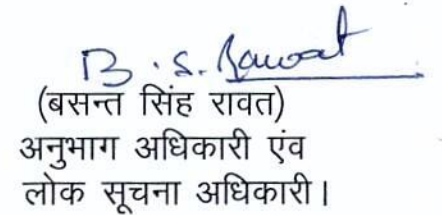 B.S. Rawat
(बसन्त सिंह रावत)
अनुभाग अधिकारी एंव
लोक सूचना अधिकारी।